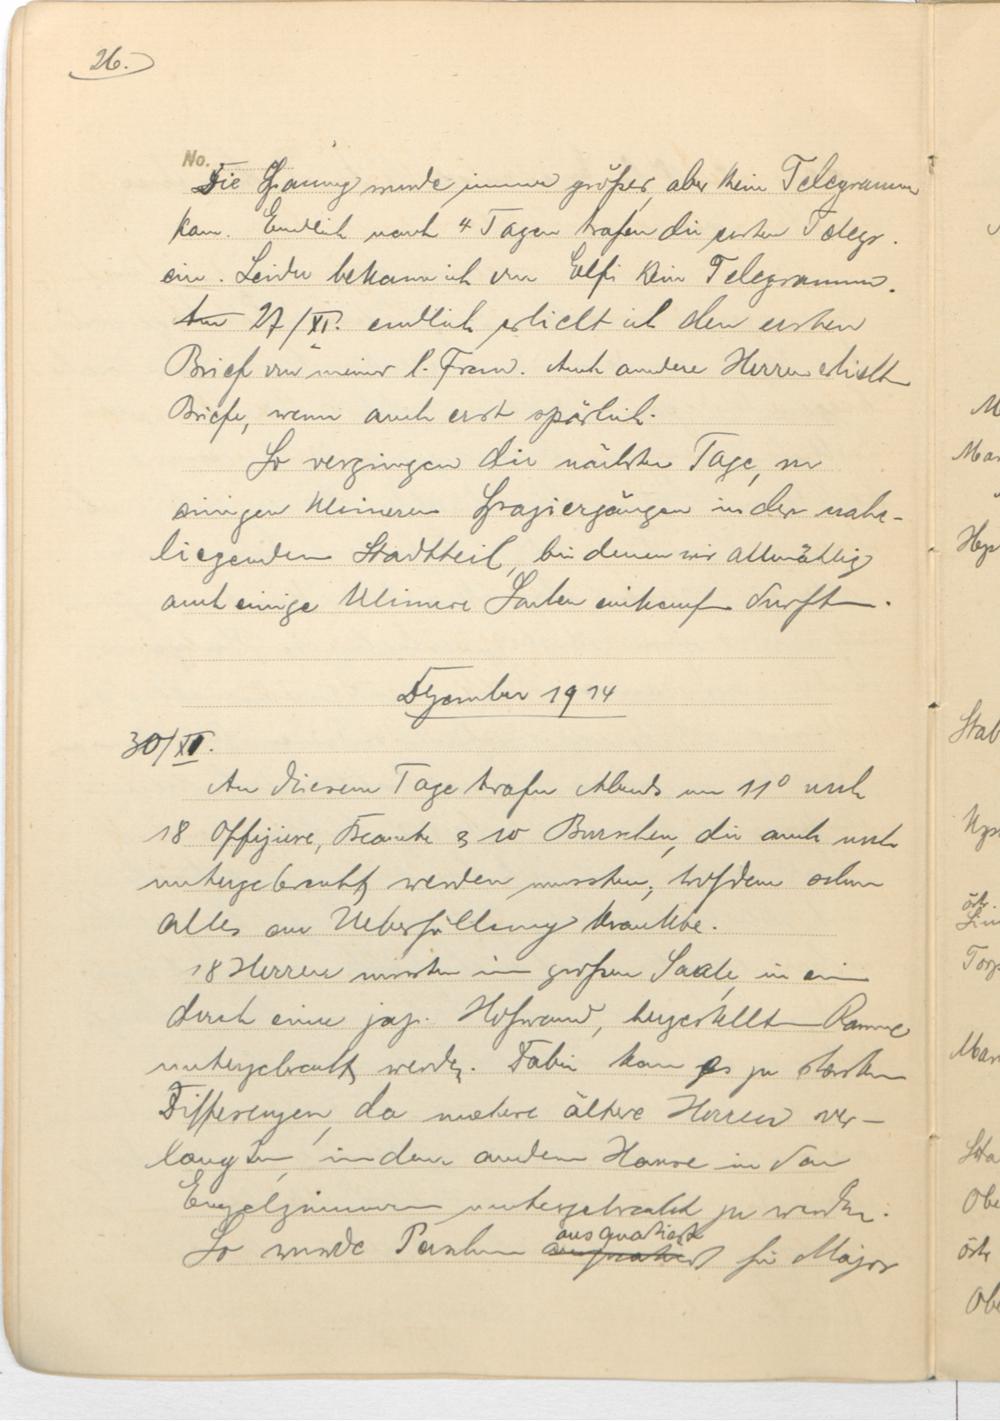 26.
No.
Die Spannung wurde immer größer, aber kein Telegramm
kam. Endlich nach 4 Tagen trafen die ersten Telegr.
ein. Leider bekam ich von Elfi kein Telegramm.
Am 27/XI. endlich erhielt ich den ersten
Brief von meiner l. Frau. Auch andere Herren erhielten
Briefe, wenn auch erst spärlich.
So vergingen die nächsten Tage, mit
einigen kleineren Spaziergängen in den nahe-
liegenden Stadtteil, bei denen wir allmählig
auch einige kleinere Sachen einkaufen durften.
Dezember 1914
30/XI.
An diesem Tage trafen Abends um 11⁰ noch
18 Offiziere, Beamte & 10 Burschen, die auch noch
untergebracht werden mussten, trotzdem schon
alles an Ueberfüllung krankte.
18 Herren mussten im großen Saale, in ein
durch eine jap. Holzwand, hergestellten Raume
untergebracht werden. Dabei kam es zu starken
Differenzen, da mehrere ältere Herren ver-
langten, in dem anderen Hause in den
Einzelzimmern untergebracht zu werden.
So wurde ausquartiert für Major